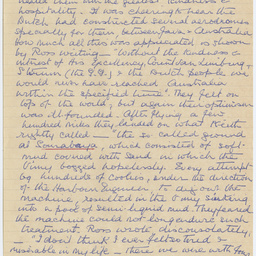 hospitality. It was cheering to hear the
Dutch had constructed several aerodromes
specially for them between Java & Australia
how much all this was appreciated is shown
by Ross writing "Without the kindness &
interest of His Excellency, Count van Limburg
Stirum (the G.G.) & the Dutch people we
would never have reached Australia
within the specified time". They felt on
top of the world, but again their optimism
was ill-founded. After flying a few
hundred miles they landed on what Keith
rightly called — "the so called ground
at Sourabaya, which consisted of soft
mud covered with sand in which the
Vimy bogged hopelessly. Every attempt
by hundreds of coolies, under the direction
of the Harbour Engineer, to dig out the
machine, resulted in the Vimy sinking
into a pool of semi-liquid mud. They feared
the machine could not long endure such
treatment. Ross wrote, disconsolately,
— "I don't think I ever felt so tired &
miserable in my life — there we were with four